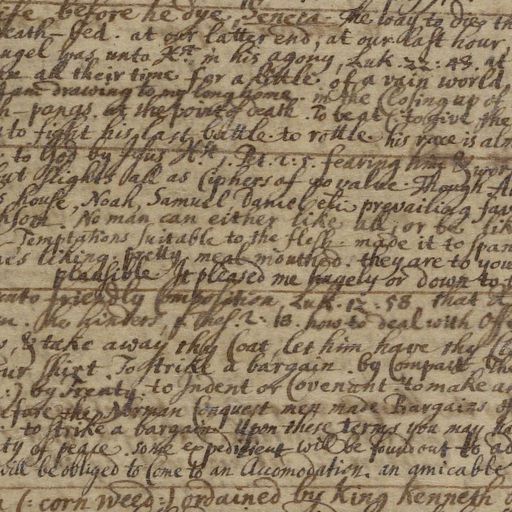 life before he dye, Seneca. The way to dye th
death-bed. at our latter end, at our last hour,
angel was unto Xst. in his agony, Luk. 22. 43. at
all their time. for a little of a vain world
I am drawing to my long home. in the Closing up of
pangs. at the point of death. To beat, to give the
to fight his last battle. to rattle. his race is alm
to God by Jesus Xst, 1 Pet. 2. 5. fearing him & wor
but slights all as Ciphers of no value. Though
house. Noah, Samuel Daniel prevailing fav
No man can either like all, or be lik
Temptations suitable to the flesh. made it to span
liking. pretty meal mouthed. they are to you
plausible. It pleased me hugely or down to t
unto friendly composition. Luk. 12. 58. that
he hinders, 1 Thes. 2. 18. how to deal with Offe
& take away thy Coat, let him have thy Cl
our skirt. To strike a bargain. by Compact. The
by Treaty. to Indent or Covenant. to make a
before the Norman Conquest men made Bargains of
to strike a bargain. Upon these terms you may ha
of peace. some expedient will be found out to ad
will be obliged to Come to an Accomodation. an amicable
(: corn weed :) ordained by King Kenneth